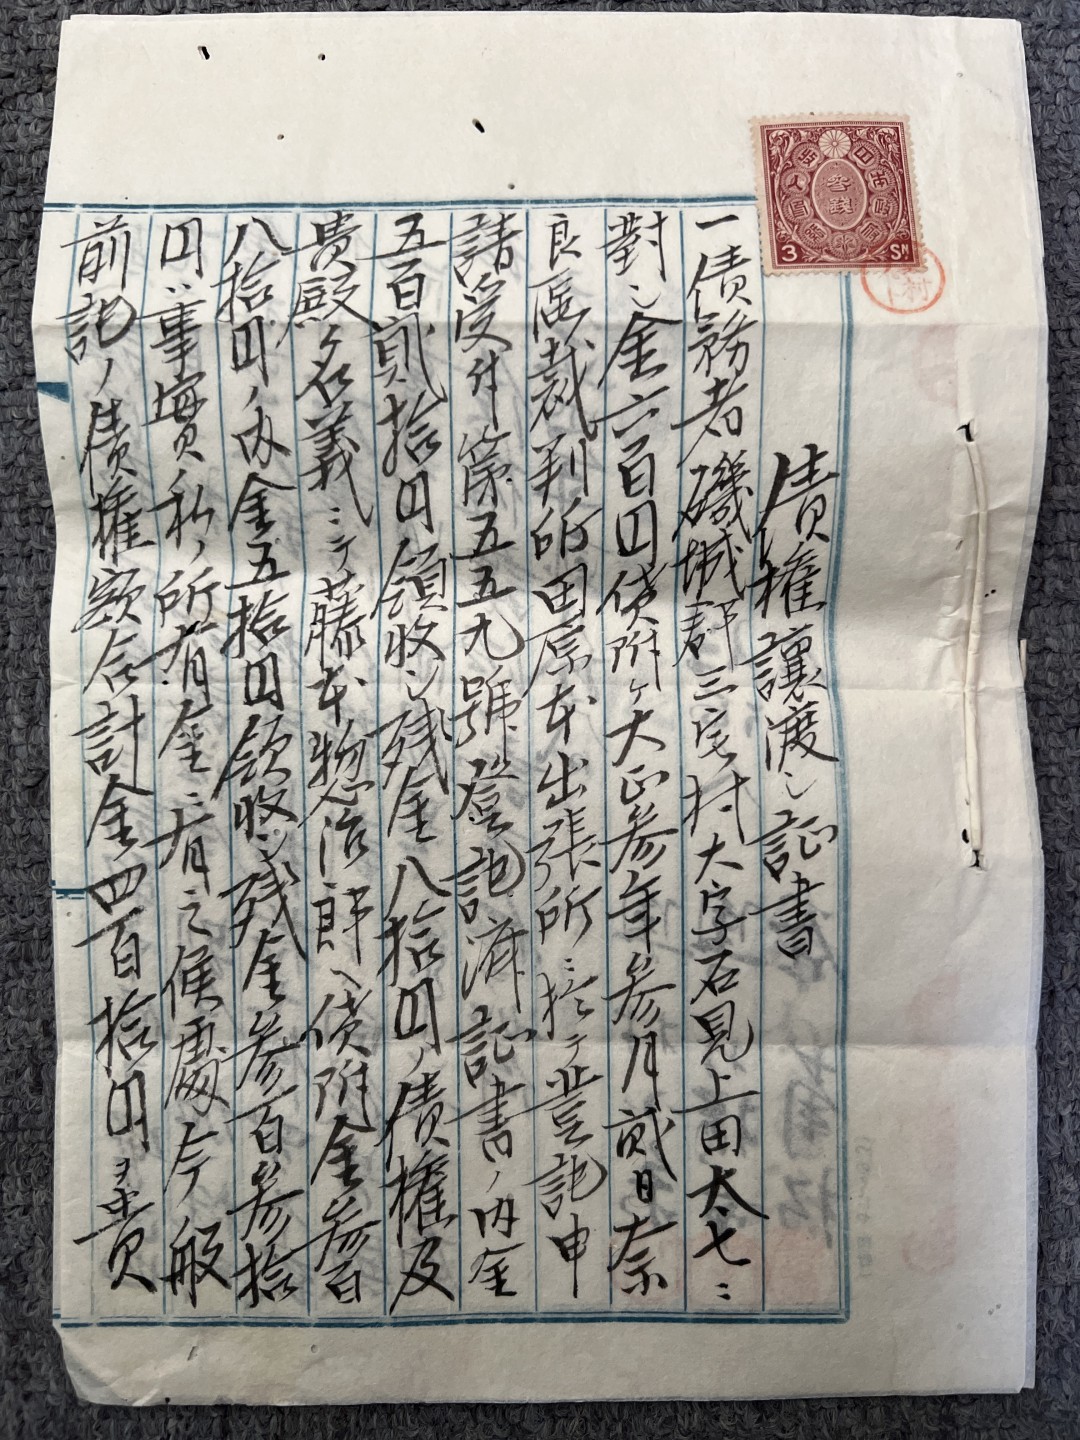 債権譲渡シ証書
一債務者磯城郡三宅村大字石見上田太七ニ
對シ金六百円貸附ケ大正参年参月貮日奈
良區裁判所田原本出張所ニ於テ登記申
請受付第五五九號登記済証書ノ内金
五百貮拾円領收シ残金八拾円ノ債権及
貴殿ケ名義ニテ藤本惣治郎ヘ貸附金参百
八拾円ノ内金五拾円領收シ残金参百参拾
円ハ事實私ノ所有金ニ有之候處今般
前記ノ債権額合計金四百拾円ヲ貴
大日本帝國政府
収入印紙
参錢
3 Sn